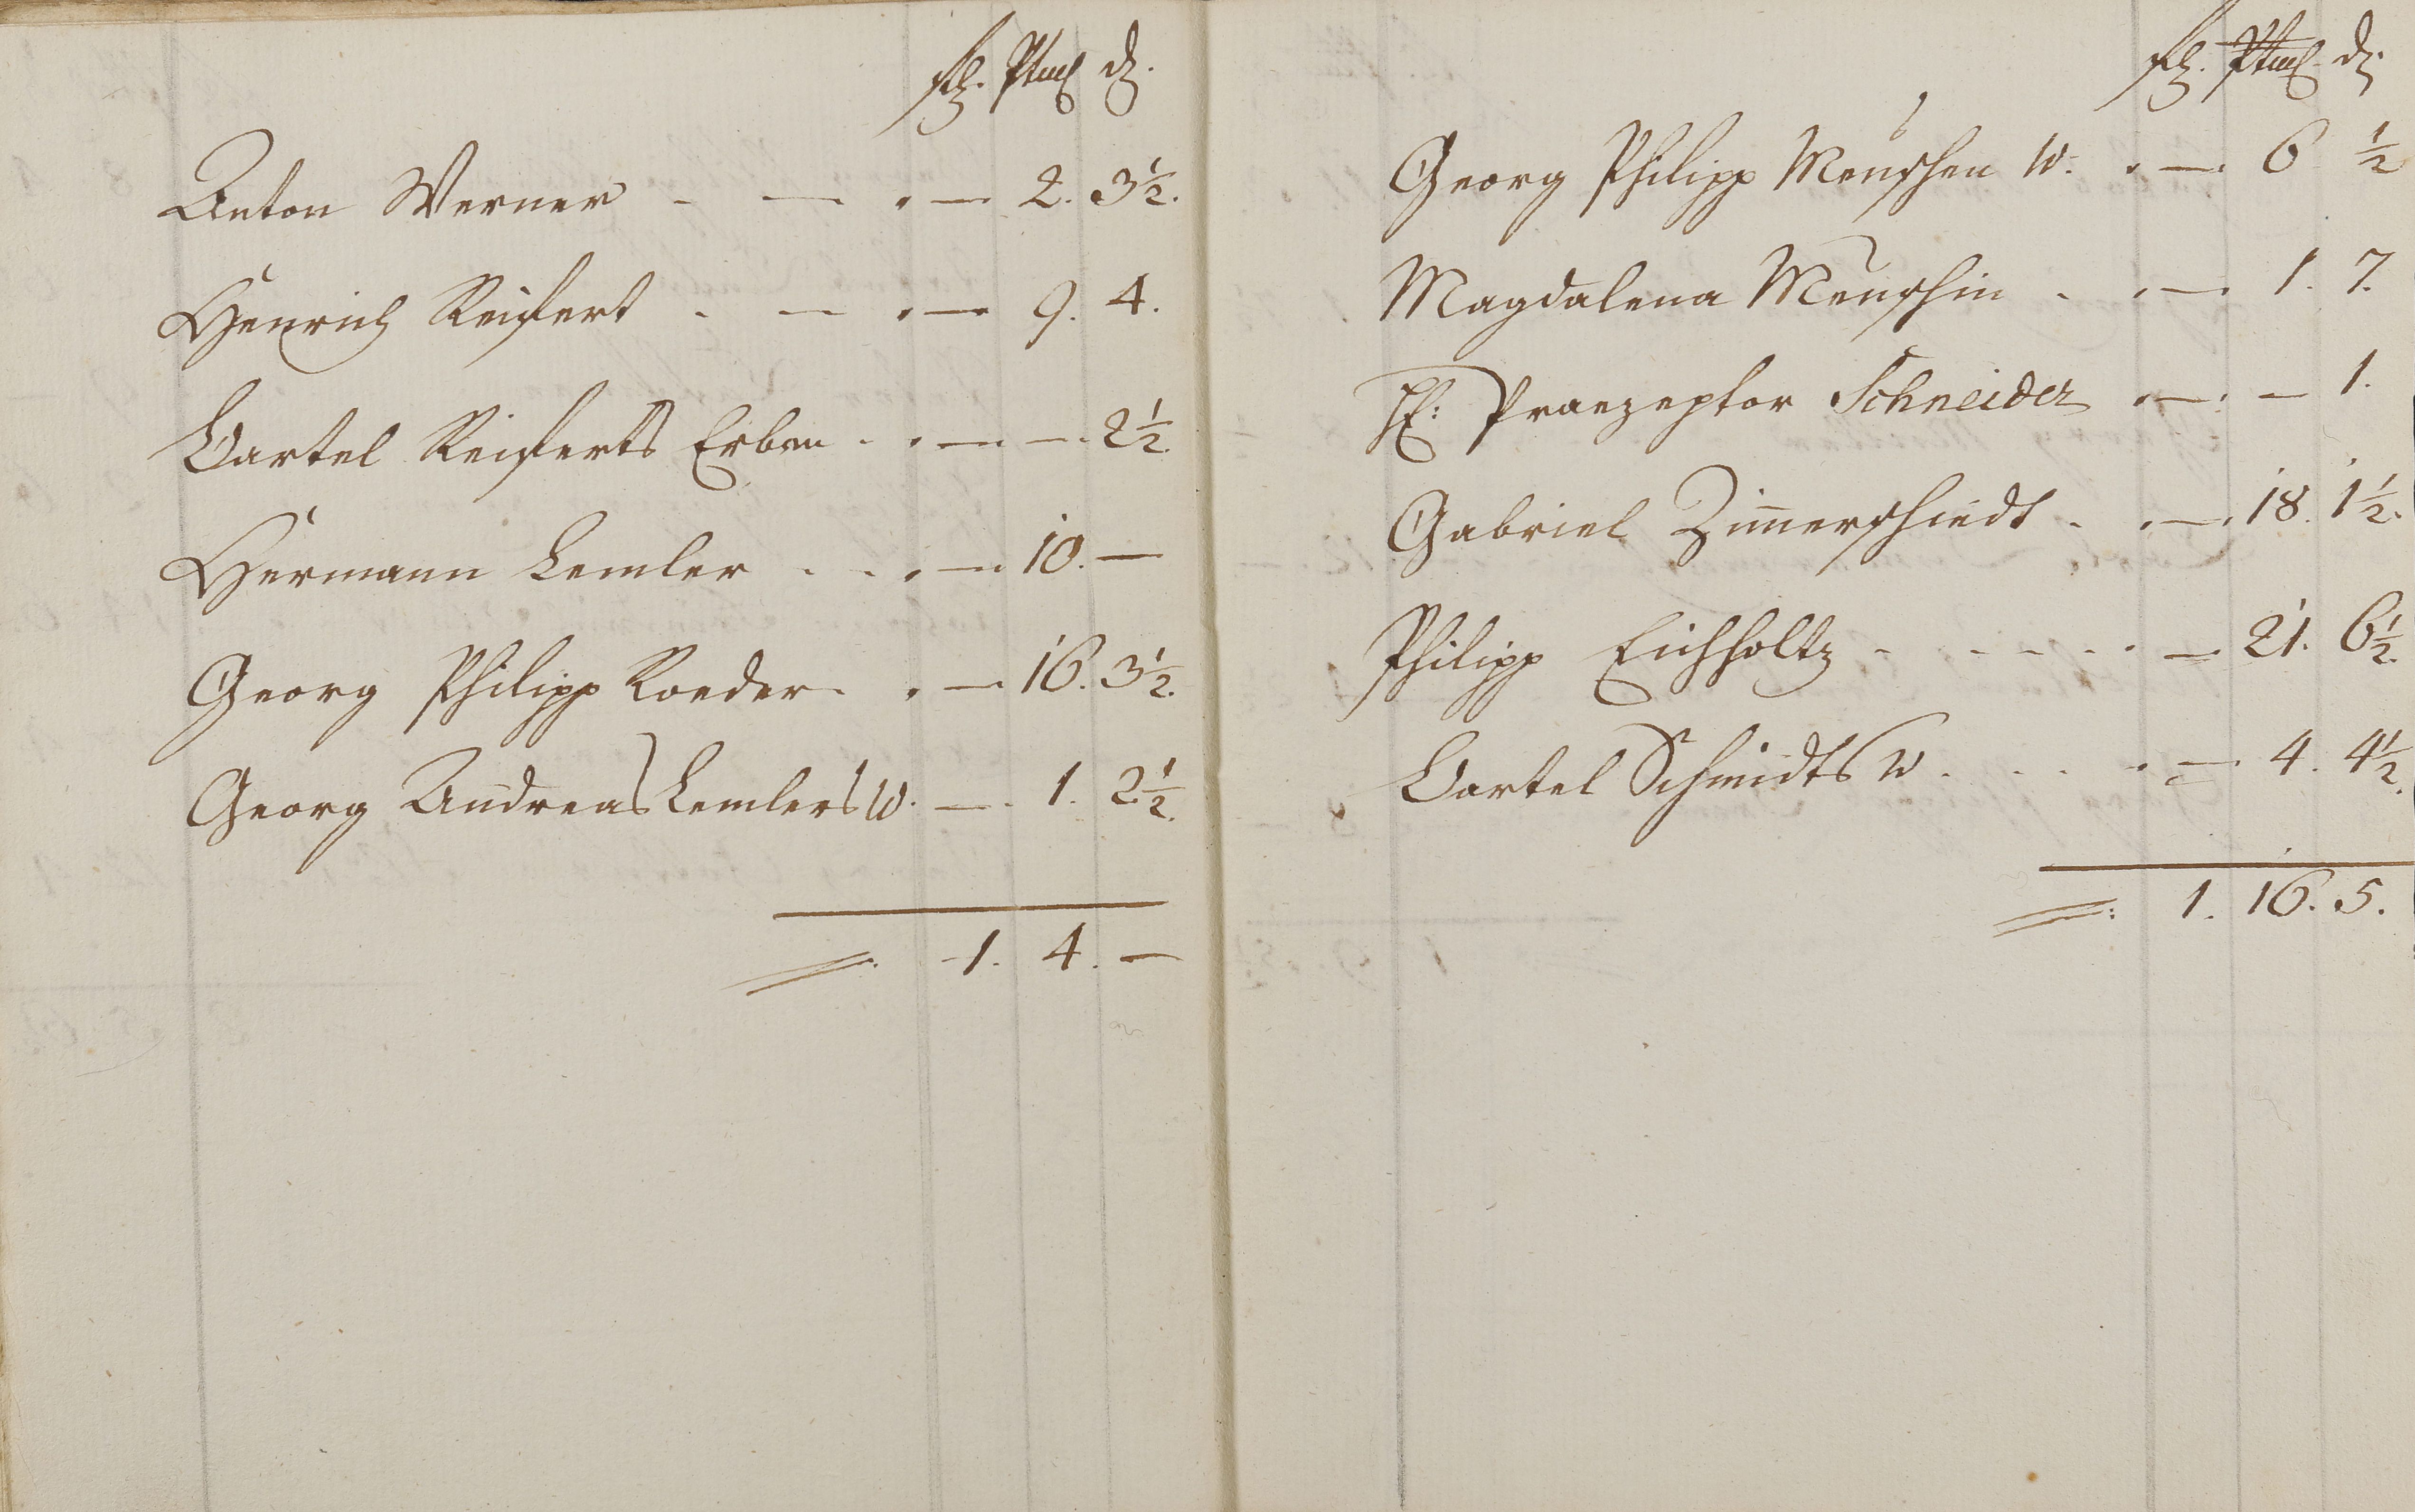 fl. Stuck d.
Anton Werner - — . — 2. 3½.
Henrich Reifert . — . — 9. 4.
Bartel Reiferts Erben . . — — . 2½.
Hermann Lemler . . . — 10. —
Georg Philipp Roeder . . — 16. 3½.
Georg Andreas Lemlers W. — . 1. 2½.
= . 1. 4. —
fl. d.
Georg Philipp Menschen W. . — 6 ½
Magdalena Menschin . . — 1. 7.
H: Praezeptor Schneider . — . — 1.
Gabriel Zim̄erschiedt . . — . 18. 1½.
Philipp Eichholtz - . - - . . — 21. 6½.
Bartel Schmidts W . . . . — . 4. 4½.
= : 1. 16. 5.